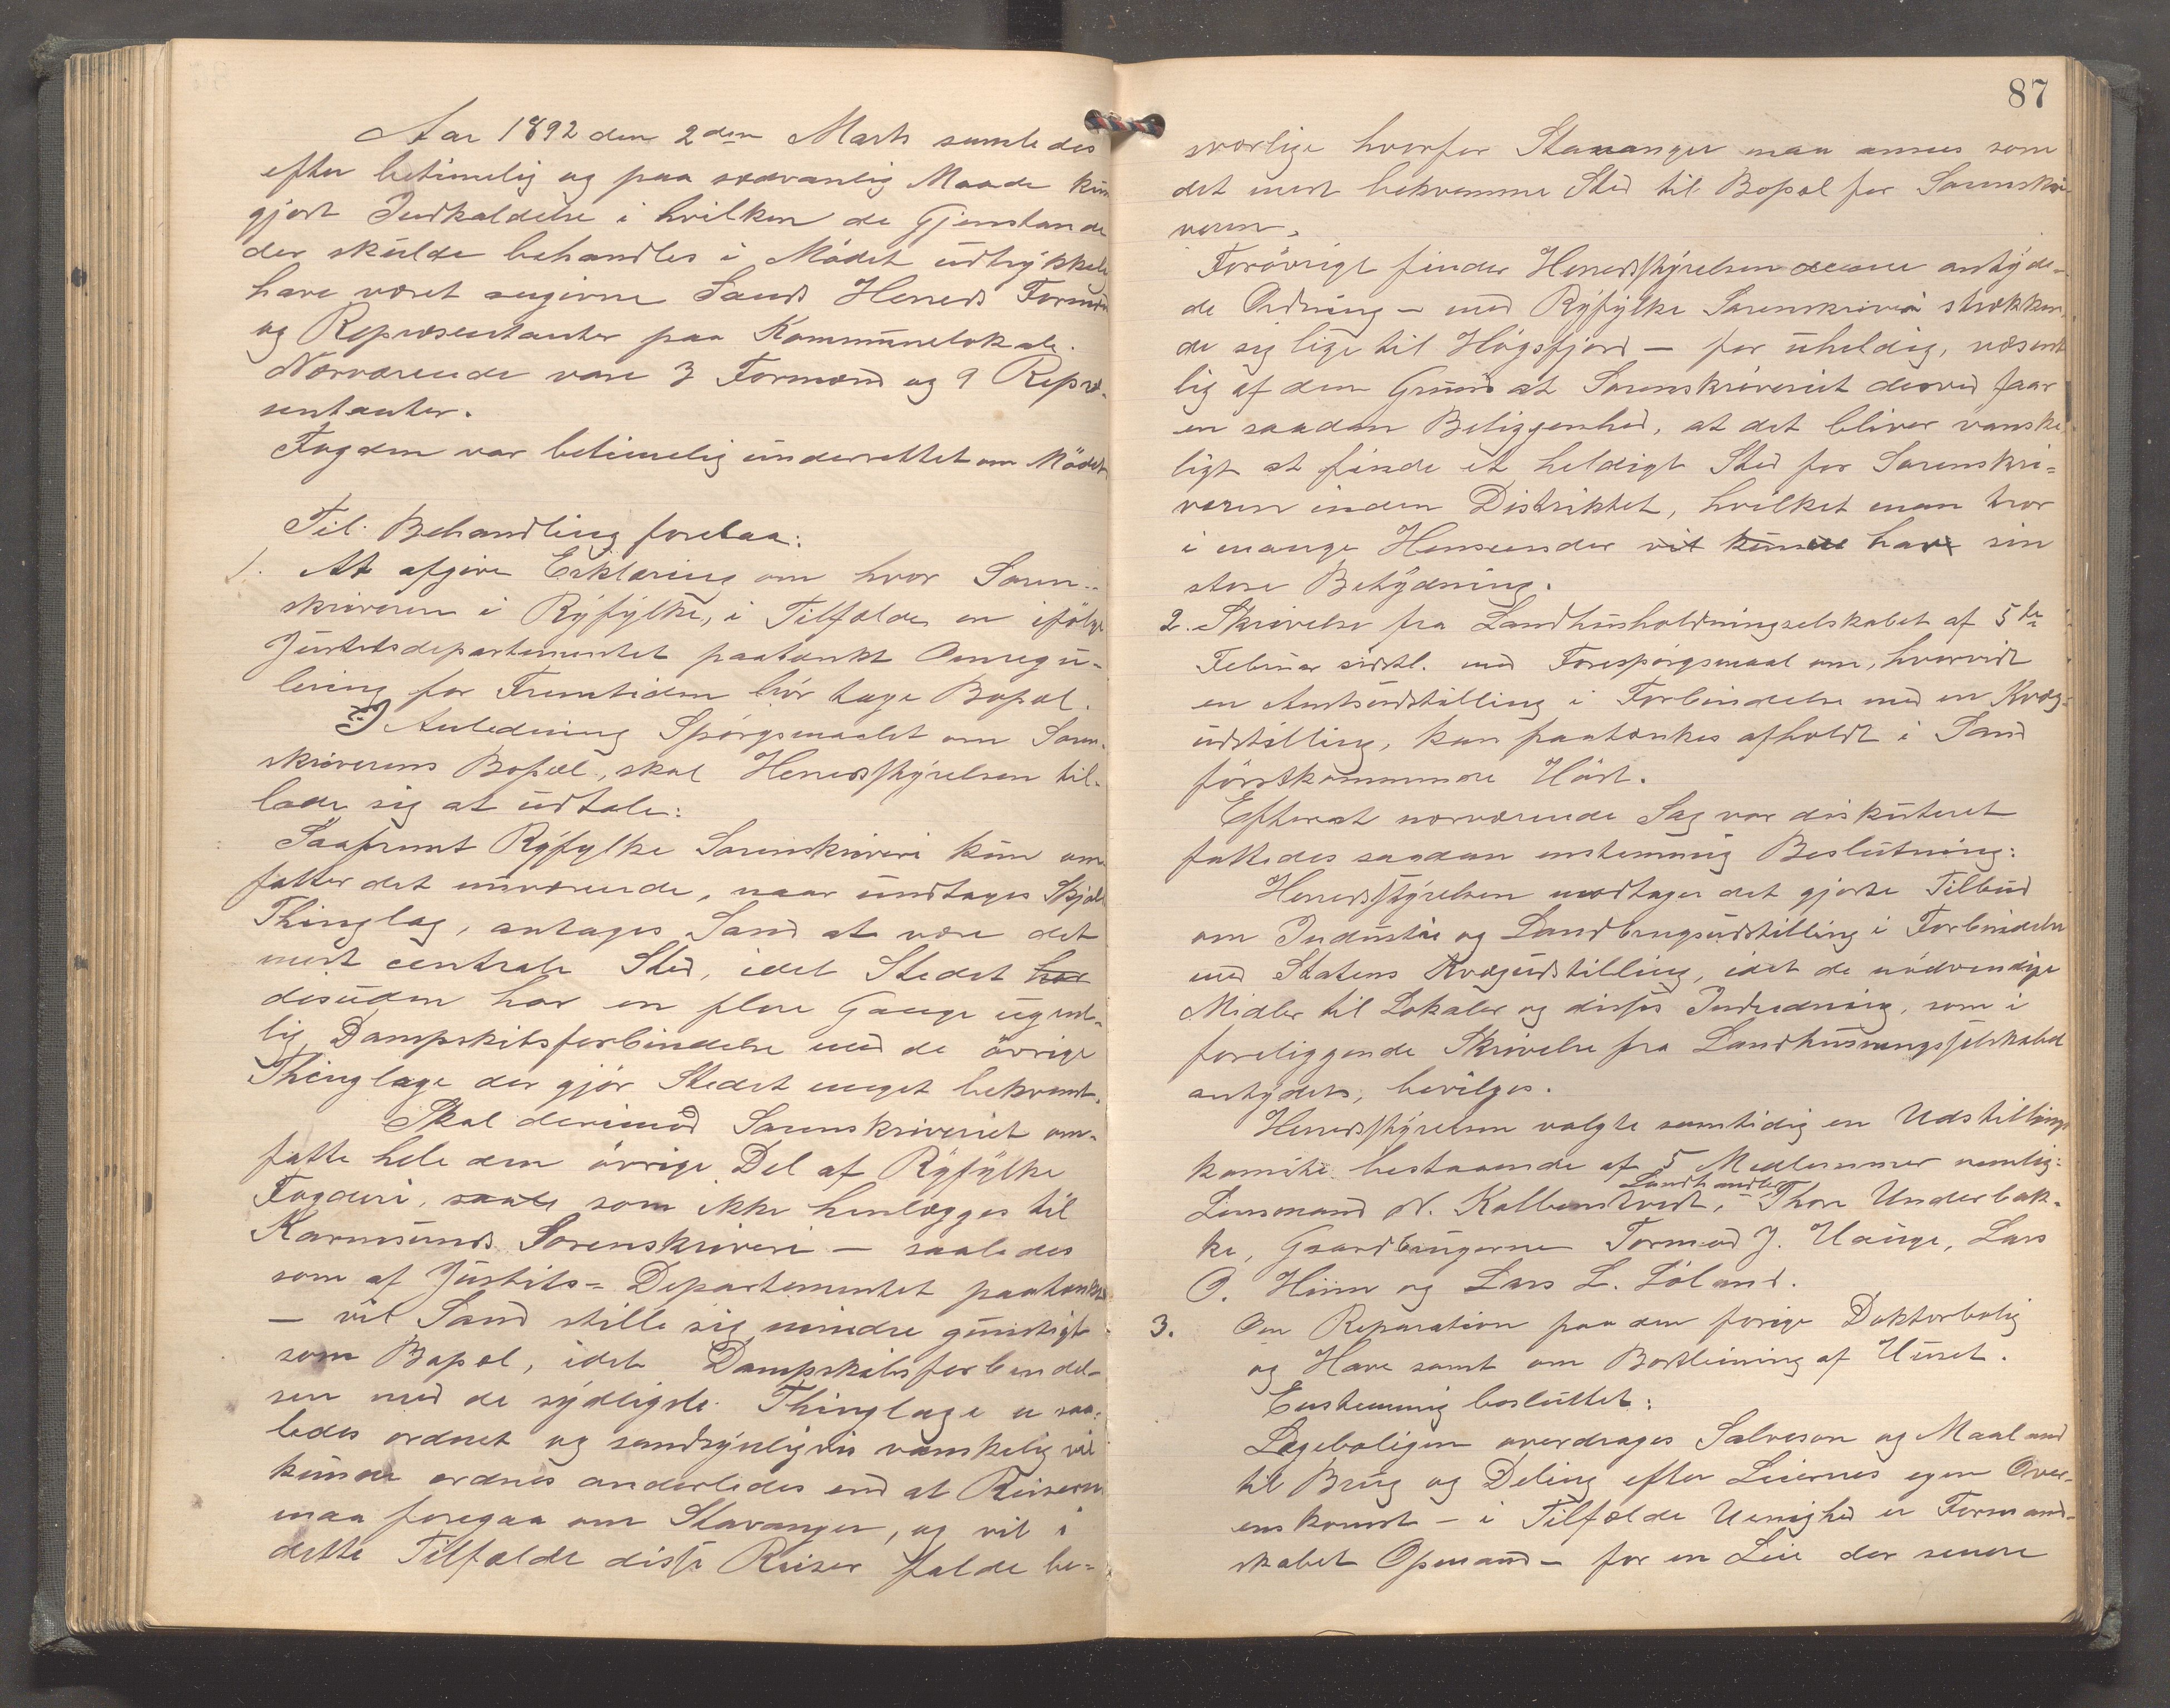 Aar 1892 den 2den Marts samledes
efter betimelig og paa sædvanlig Maade kun
gjort Indkaldelse i hvilken de Gjenstande
der skulde behandles i Mødet udtrykkelig
have været angivne Sands Herreds Formænd
og Repræsentanter paa Kommunelokale.
Nærværende vare 3 Formænd og 9 Repræ-
sentanter.
Fogden var betimelig underrettet om Mødet
Til Behandling forelaa:
1. At afgive Erklæring om hvor Soren-
skriveren i Ryfylke, i Tilfælde en ifølge
Justitsdepartementet paatænkt Omregu-
lering for Fremtiden bør tage Bopæl.
I Anledning Spørgsmaalet om Soren-
skriverens Bopæl, skal Herredsstyrelsen til-
lade sig at udtale:
Saafremt Ryfylke Sorenskriveri kun om
fatter det nuværende, naar undtages Skjold
Thinglag, antages Sand at være det
mest centrale Sted, idet Stedet har
desuden har en flere Gange ugent-
lig Dampskibsforbindelse med de øvrige
Thinglage der gjør Stedet meget bekvemt.
Skal derimod Sorenskriveriet om-
fatte hele den øvrige Del af Ryfylke
Fogderi, saale som ikke henlægges til
Karmsunds Sorenskriveri — saaledes
som af Justits-Departementet paatænkt
— vil Sand stille sig mindre gunstigt
som Bopæl, idet Dampskibsforbindel-
sen med de sydligste Thinglage er saa-
ledes ordnet og sandsynligvis vanskelig vil
kunne ordnes anderledes end at Reisen
maa foregaa om Stavanger, og vil i
dette Tilfælde disse Reiser falde be-
87
sværlige hvorfor Stavanger maa ansees som
det mest bekvemme Sted til Bopæl for Sorenskri-
veren.
Forøvrigt finder Herredsstyrelsen denne antyde-
de Ordning — med Ryfylke Sorenskriveri strækken-
de sig lige til Høgsfjord — for uheldig, væsent
lig af den Grund at Sorenskriveriet derved faar
en saadan Beliggenhed, at det bliver vanske
ligt at finde et heldigt Sted for Sorenskri-
veren inden Distriktet, hvilket man tror
i mange Hensender vil kunne have sin
store Betydning.
2. Skrivelse fra Landhusholdningselskabet af 5te
Februar sidstl. med Forespørgsmaal om, hvorvidt
en Amtsudstilling i Forbindelse med en Kvæg-
udstilling, kan paatænkes afholdt i Sand
førstkommende Høst.
Efterat nærværende Sag var diskuteret
fattedes saadan enstemmig Beslutning:
Herredsstyrelsen modtager det gjorte Tilbud
om Industri og Landbrugsudstilling i Forbindelse
med Statens Kvægudstilling, idet de nødvendige
Midler til Lokaler og disses Indredning, som i
foreliggende Skrivelse fra Landhusningsselskabet
antydets, bevilges.
Herredsstyrelsen valgte samtidig en Udstillings
komite bestaaende af 5 Medlemmer nemlig:
Lensmand N. Kolbenstvedt, Landhandler Thore Underbak-
ke, Gaardbrugerne Tormod J. Hauge, Lars
O. Hiim og Lars L. Løland.
3. Om Reparation paa den forige Doktorbolig
og Have samt om Bortleining af Huset.
Enstemmig besluttet:
Lægeboligen overdrages Salveson og Maaland
til Brug og Deling efter Leiernes egen Over-
enskomst — i Tilfælde Uenighed er Formand-
skabet Opmand — for en Leie der senere